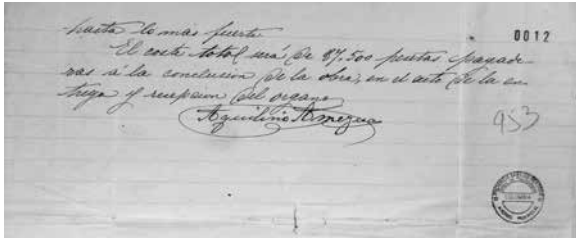 hasta lo más fuerte
0012
El coste total será de 87.500 pesetas pagade-
ras á la conclusion de la obra, en el acto de la en-
trega y recepcion del organo
Aquilino Amezua
953
COLOMBIA